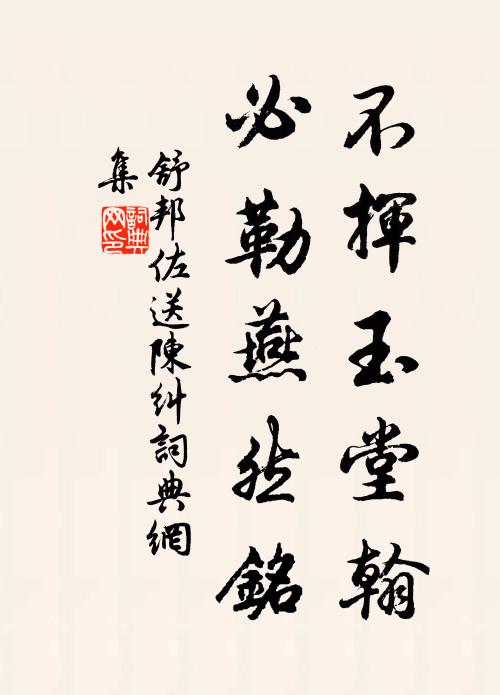 不揮玉堂翰
必勒燕然銘
舒邦佐送陳糾詞典網
集
詞典
网印